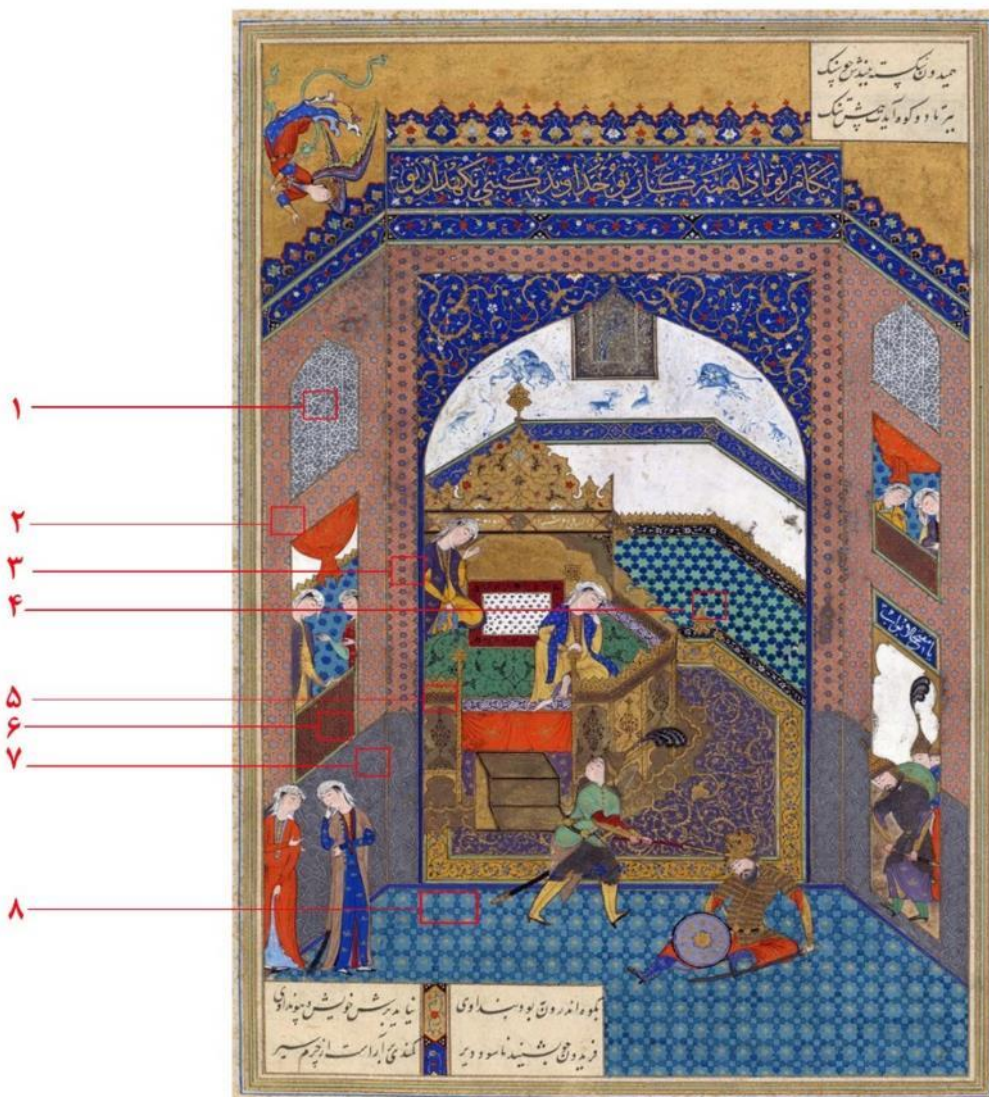 همیدون شکسته ببندش چو سنگ
ببر تا دو کوه آیدت پیش تنگ
بکام تو بادا همه کار تو خداوند گیتی نگهدار تو
۱
۲
۳
۴
یا مفتح الابواب
۵
۶
۷
۸
بکوه اندرون به بود بند اوی نیاید برش خویش و پیوند اوی
فریدون چو بشنید ناسود دیر کمندی بیاراست از چرم شیر